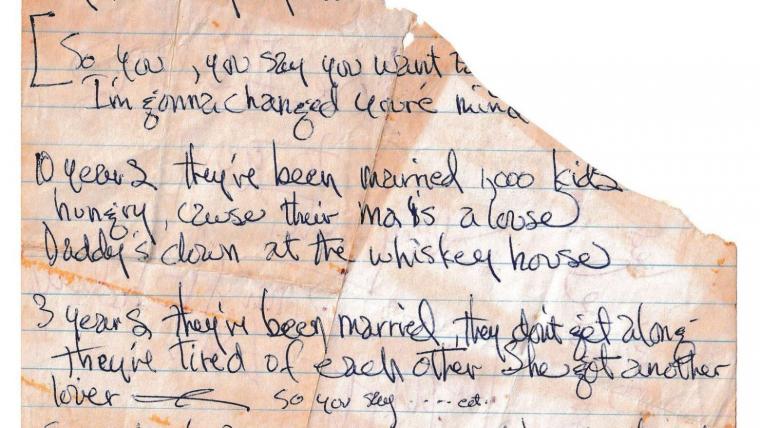 [So you, you say you want
I'm gonna changed you're mind
10 years they've been married 1,000 kids
hungry, cause their ma's a louse
Daddy's down at the whiskey house
3 years they've been married, they don't get along
they're tired of each other She got another
lover — So you say .....ect.